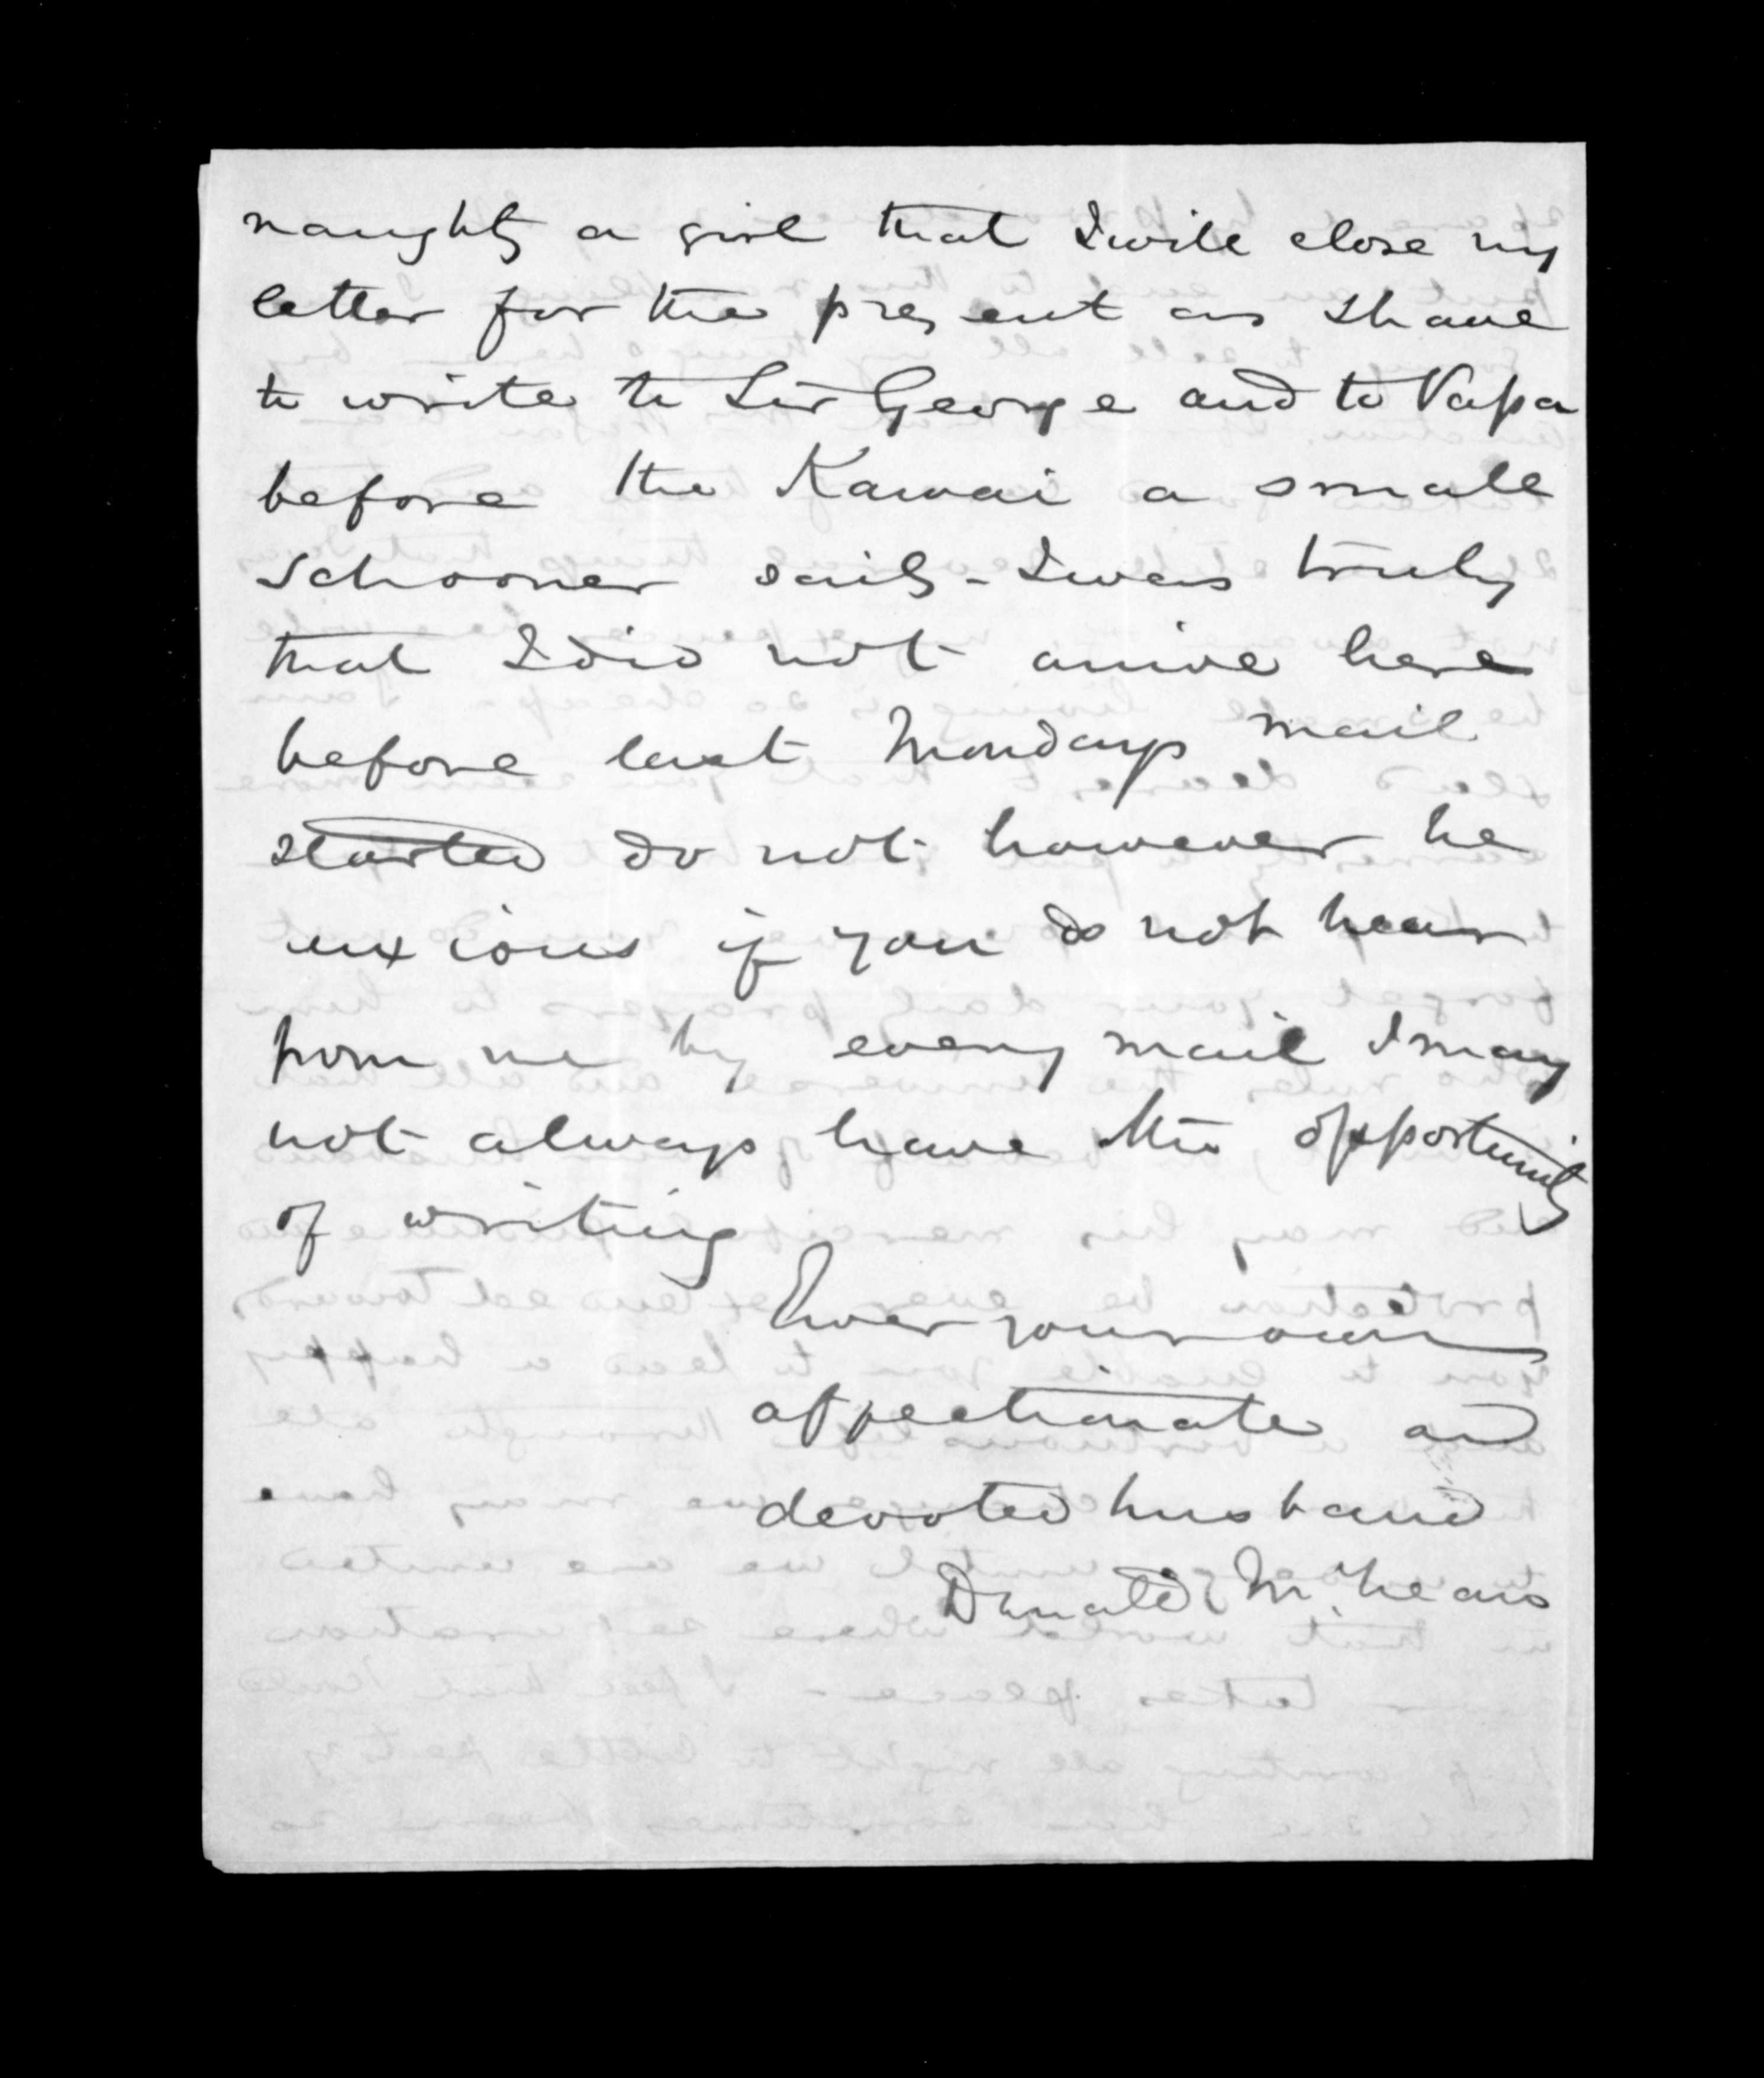 naughty a girl that I will close my
letter for the present as I have
to write to Sir George and to Papa
before the Kawai a small
schooner sails - I was truly
that I did not arrive here
before last Mondays mail
started do not however be
anxious if you do not hear
from me by every mail I may
not always have the opportunity
of writing
Ever your own
affectionate and
devoted husband
Donald McLean